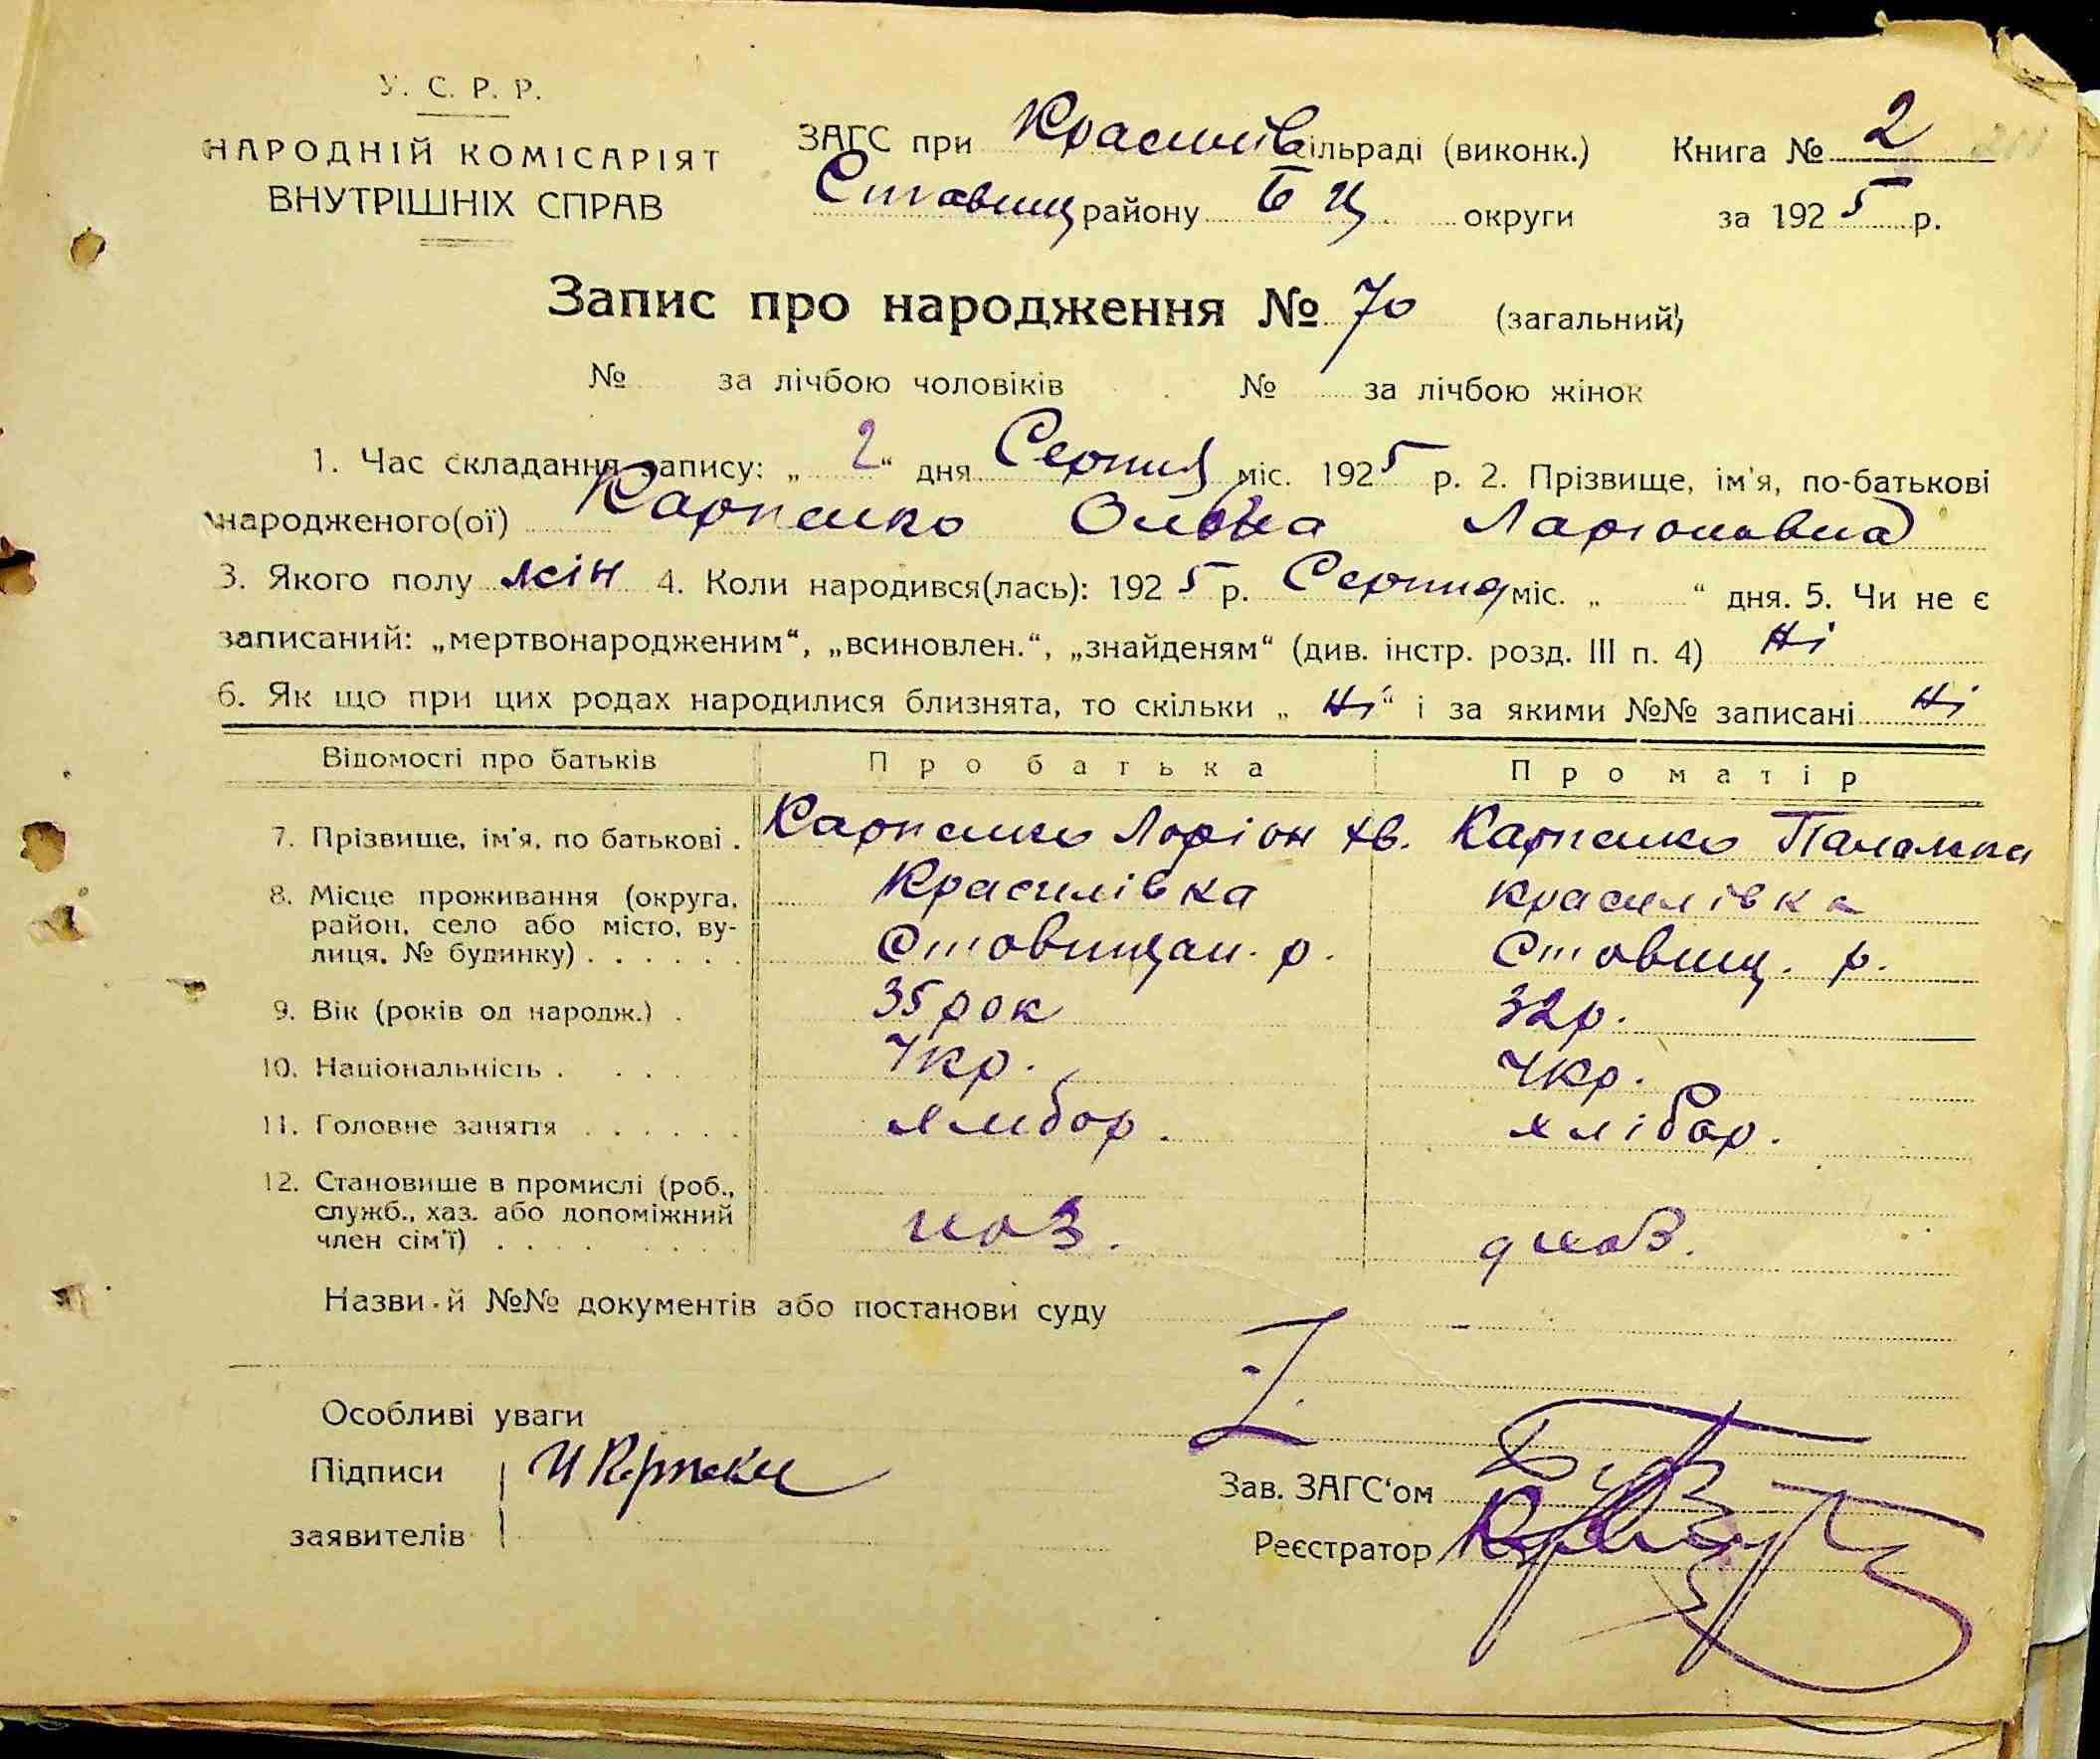 У. С. Р. Р.
НАРОДНІЙ КОМІСАРІЯТ
ВНУТРІШНІХ СПРАВ
ЗАГС при Красилів сільраді (виконк.) Книга № 2
Ставищ району Б Ц. округи за 1925 р.
Запис про народження № 70 (загальний)
№ за лічбою чоловіків № за лічбою жінок
1. Час складання запису: „ 2 “ дня Серпня міс. 1925 р. 2. Прізвище, ім'я, по-батькові
народженого(ої) Карпенко Олена Ларіоновна
3. Якого полу жін 4. Коли народився(лась): 1925 р. Серпня міс. „ “ дня. 5. Чи не є
записаний: „мертвонародженим“, „всиновлен.“, „знайденям“ (див. інстр. розд. III п. 4) Ні
6. Як що при цих родах народилися близнята, то скільки „ Ні “ і за якими №№ записані Ні
Відомості про батьків Про батька Про матір
7. Прізвище, ім'я, по батькові . Карпенко Ларіон Хв. Карпенко Палажка
8. Місце проживання (округа, Красилівка Красилівка
район, село або місто, ву-
лиця, № будинку) . . . . . . Ставищан. р. Ставищ. р.
9. Вік (років од народж.) . 35 рок 32 р.
10. Національність . . . . Укр. Укр.
11. Головне заняття . . . . . . хлибор. хлібор.
12. Становище в промислі (роб.,
служб., хаз. або допоміжний
член сім'ї) . . . . . . . . хаз. д хаз.
Назви й №№ документів або постанови суду
Особливі уваги
Підписи
Зав. ЗАГС'ом
заявителів
Реєстратор